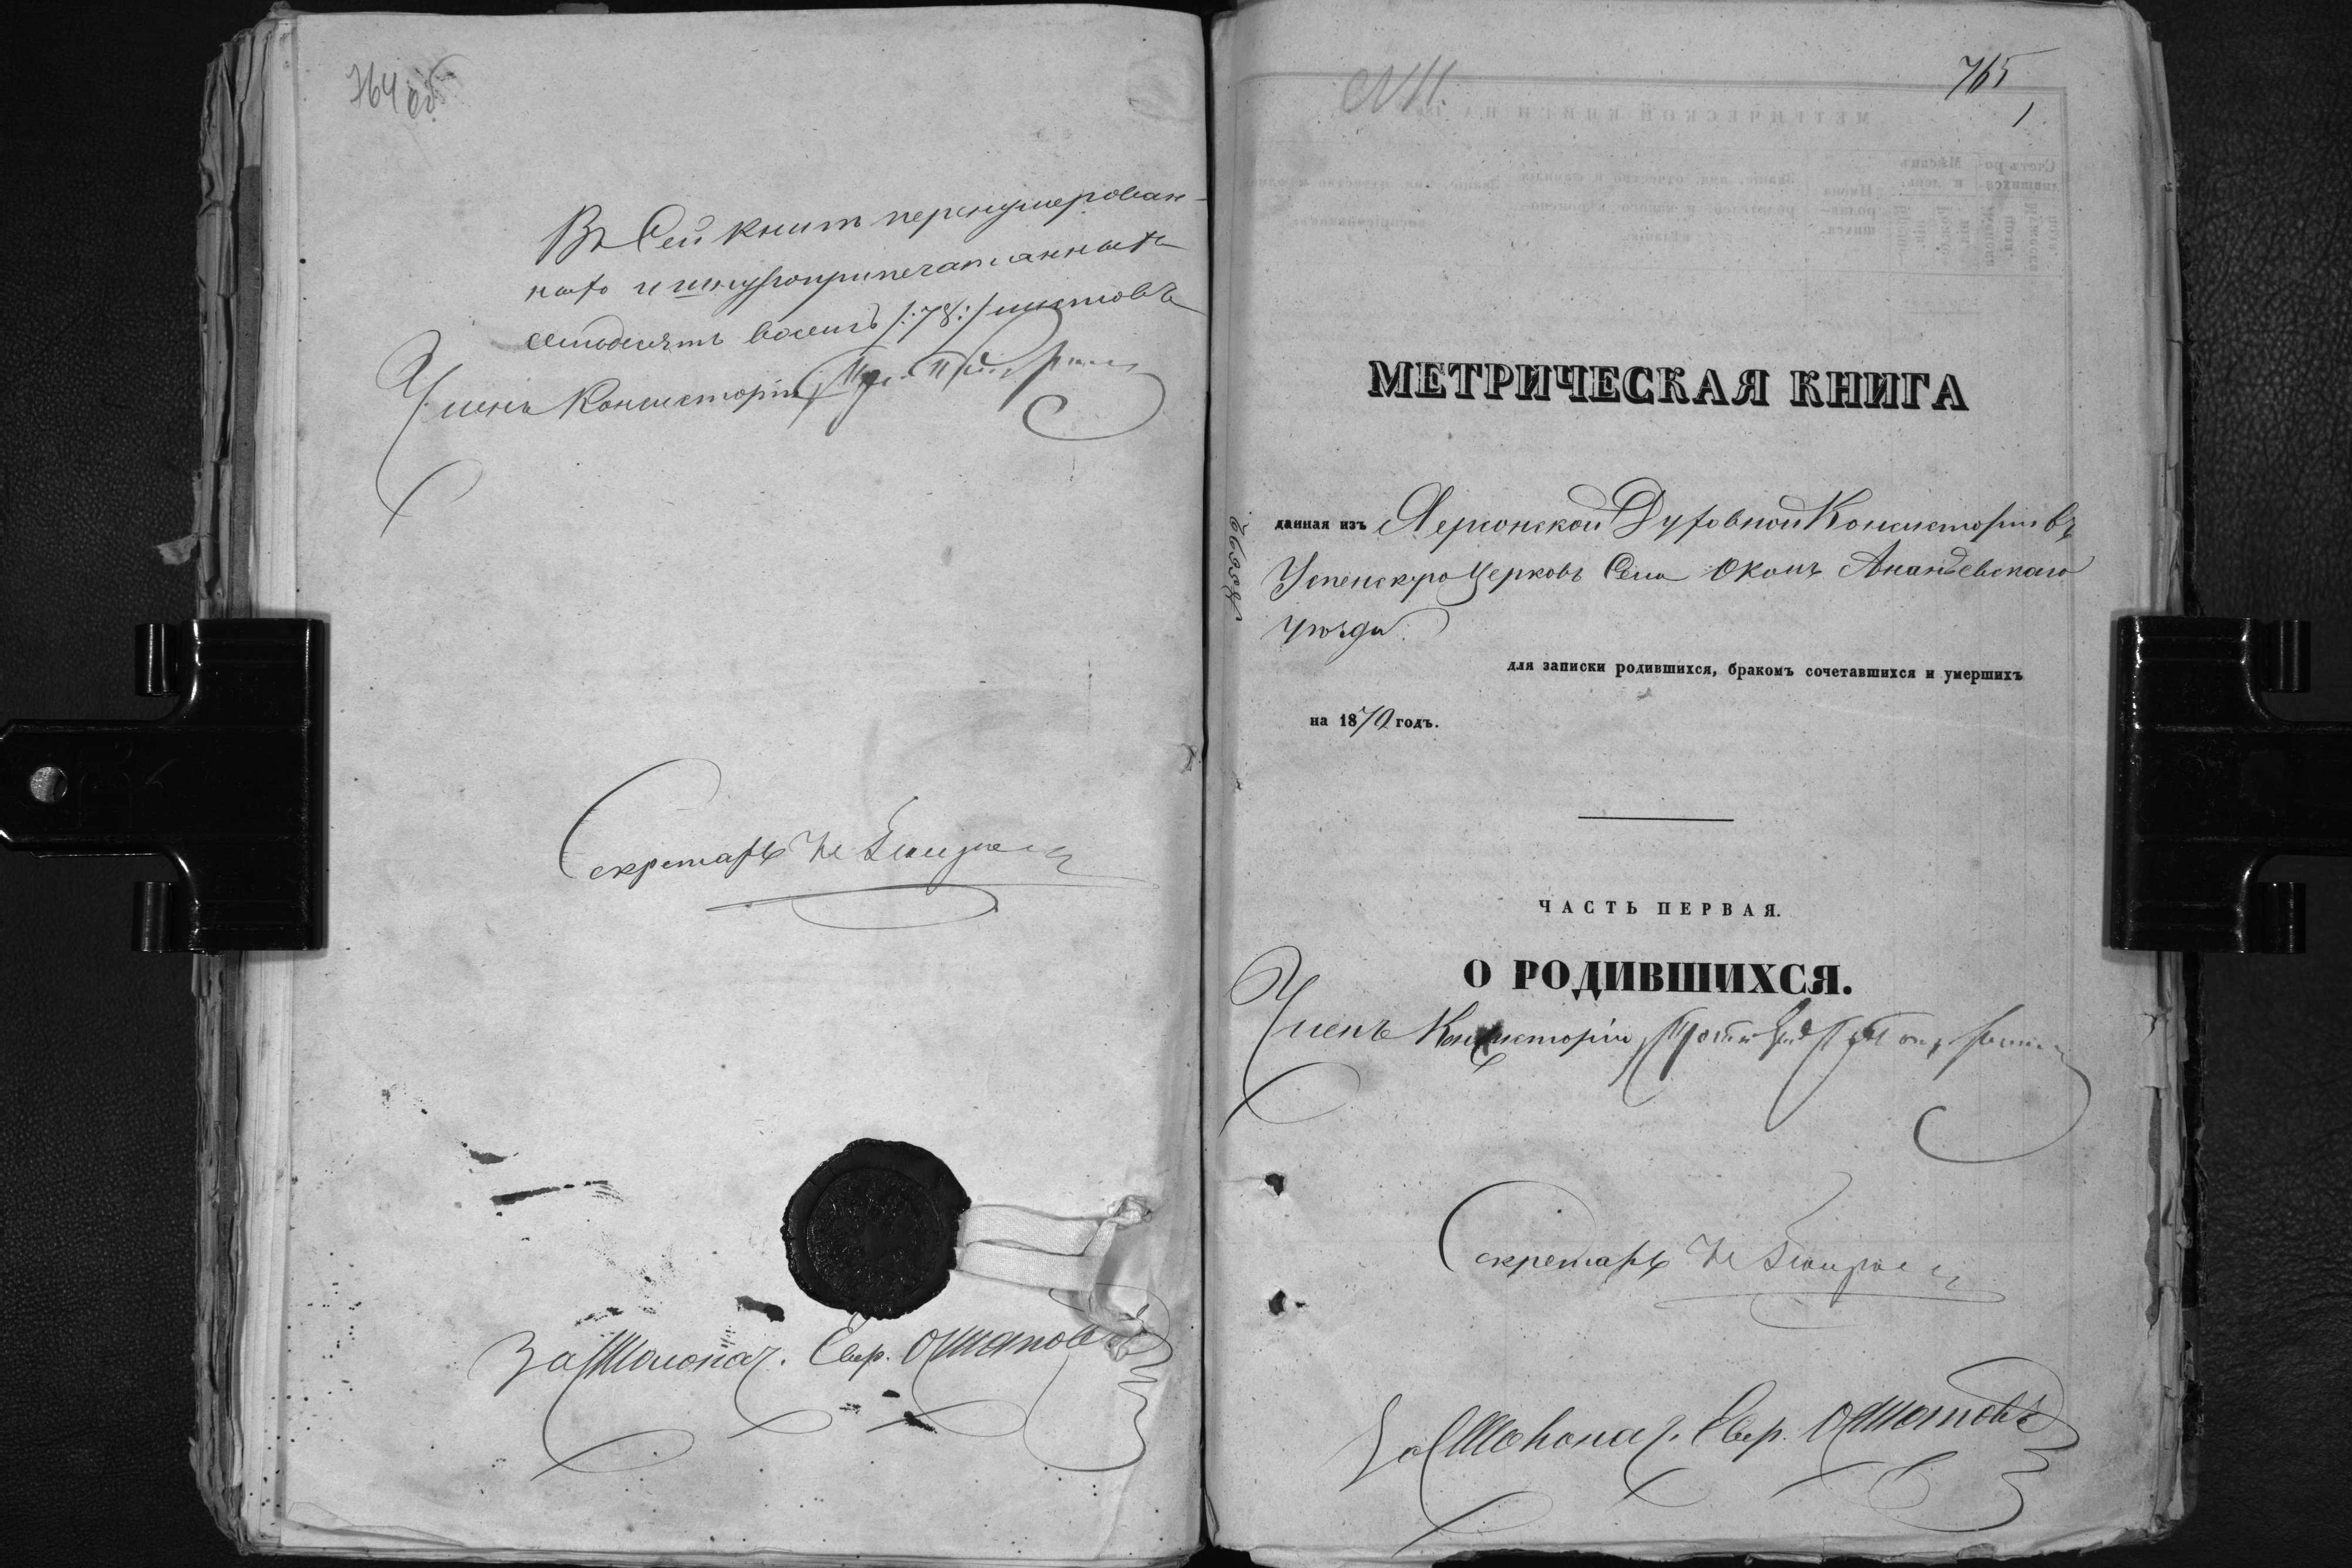 764 об
Въ Сей книгѣ перенумерован-
ныхъ и шнуроприпечатанныхъ
семьдесятъ восемь /:78:/ листовъ
Членъ Консисторіи
Секретарь
За Столонач. Евр.
№ 11.
765
1
МЕТРИЧЕСКАЯ КНИГА
данная изъ Херсонской Духовной Консисторіи въ
Успенскую Церковь Села Окомъ Ананьевскаго
уѣзда.
для записки родившихся, бракомъ сочетавшихся и умершихъ
на 1870 годъ.
ЧАСТЬ ПЕРВАЯ.
О РОДИВШИХСЯ.
Членъ Консисторіи
Секретарь
За Столонач. Евр.